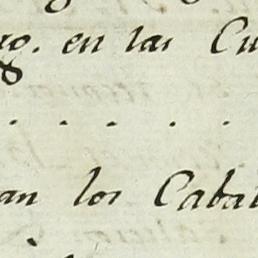 en las Cu
. . . . .
an los Caba